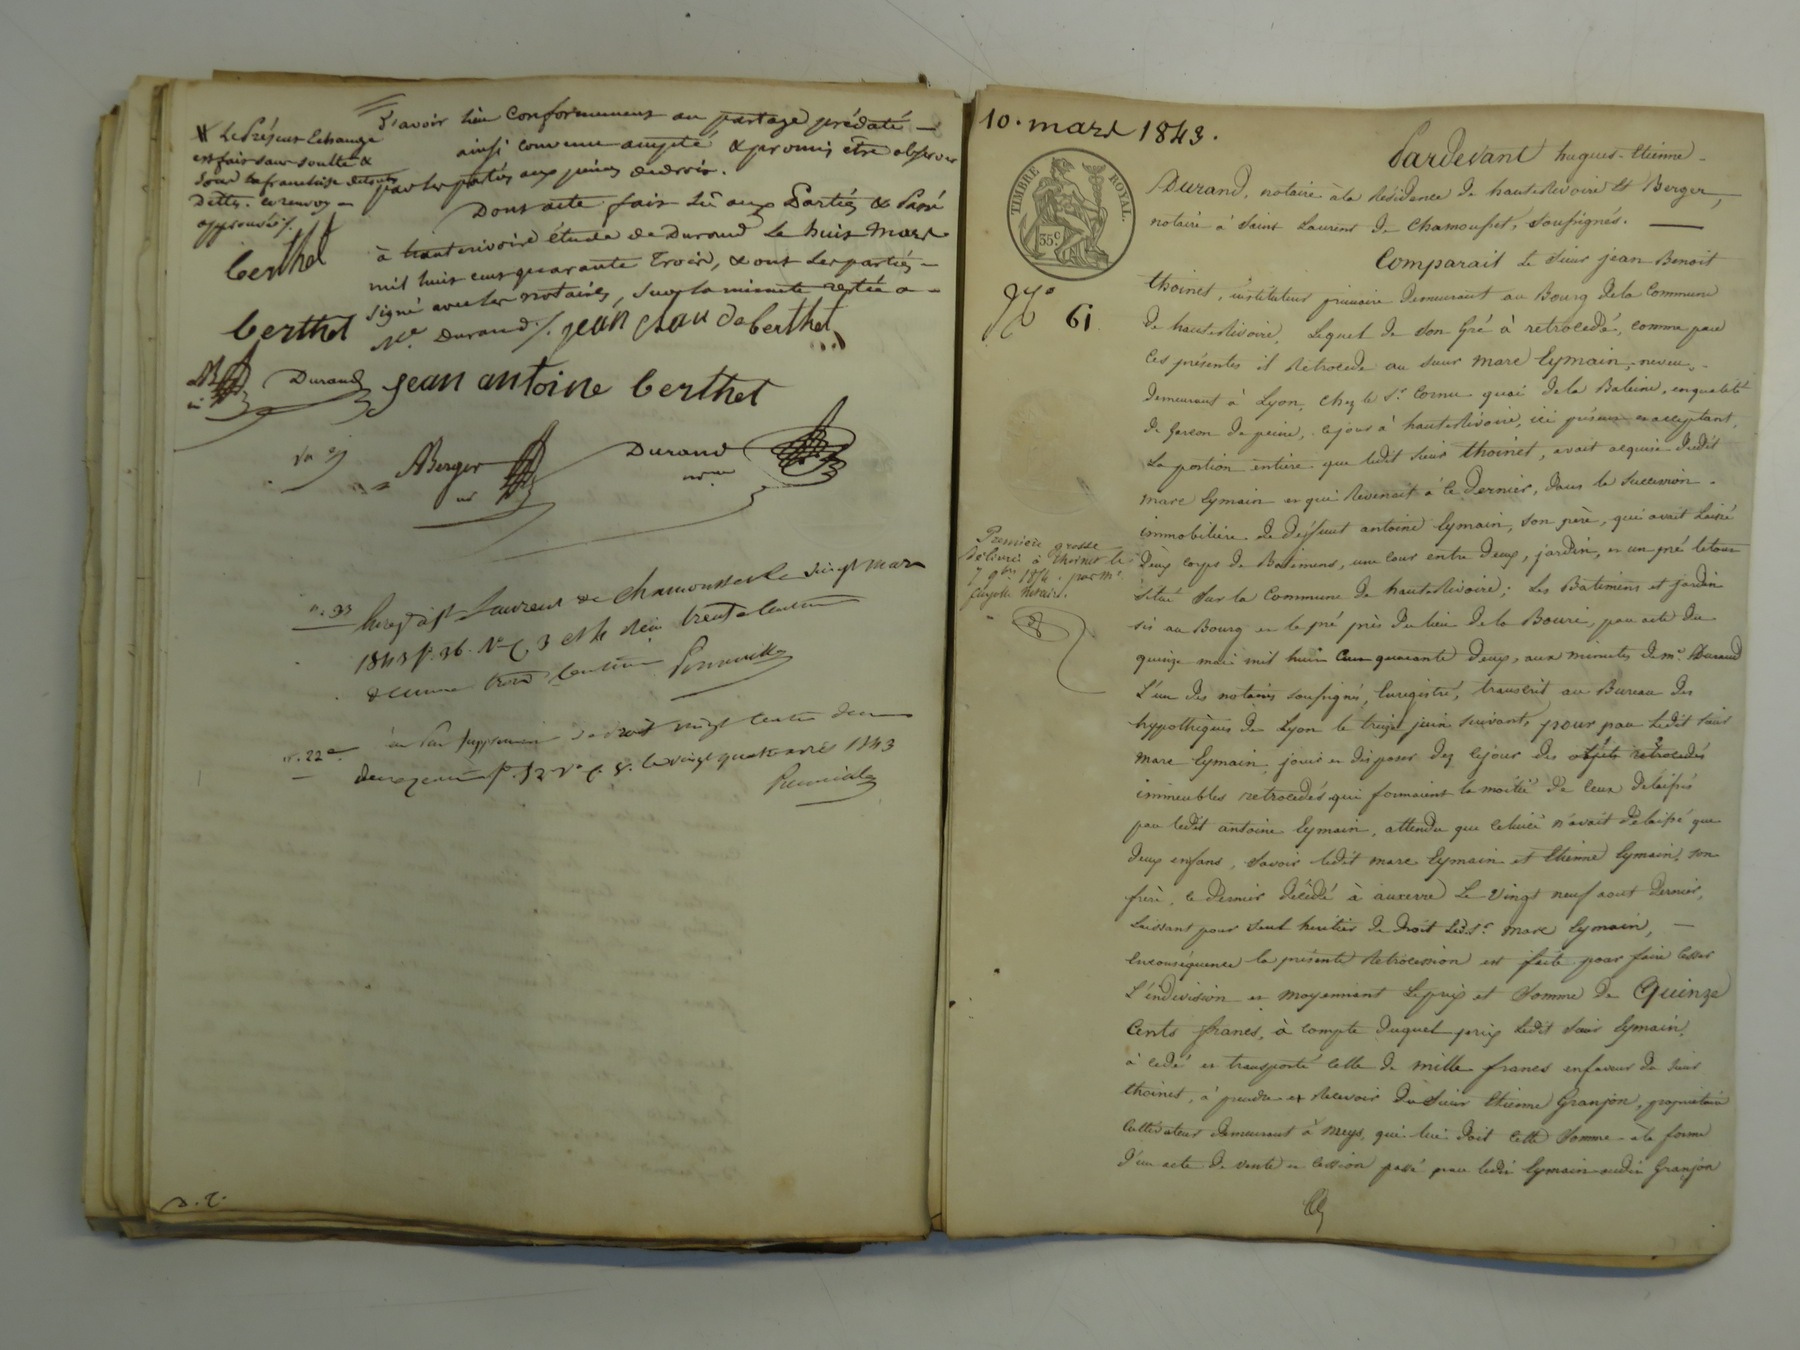 # Le présent Echange
est fait sans soulte &
sous la franchise de toutes
Dettes. ce renvoy
approuvé /.
berthet
S'avoir lieu conformement au partage prédaté —
ainsi convenu accepté & promis être observer
par les parties aux peines de droit.
Dont acte fait Lû aux Parties & Passé
à hauterivoire étude de Durand Le huit Mars
mil huit cent quarante Trois, & ont les parties —
signé avec les notaires, sur la minute restée a —
Me. Durand /. jean claude berthet
berthet
Durand jean antoine berthet
ABerger nre
Durand
nre
Enregt. à St Laurent de chamousset Le vingt mars
1843 fo. 36. Vo C. 3 et le Reçu trente centimes
1843
10. mars 1843.
TIMBRE ROYAL.
35c
No 61
Première grosse
délivrée à thoinet le
Pardevant hugues-Etienne —
Durand, notaire à la Résidence de hauterivoire et Berger,
notaire à Saint Laurent de Chamousset, soussignés. —
Comparait Le sieur jean Benoit
thoinet, instituteur primaire demeurant au Bourg dela Commune
de hauterivoire, Lequel de son gré à retrocedé, comme par
Ces présentes il Retrocede au sieur marc Eymain, neveu, -
demeurant à Lyon, chez le Sr. Cornu quai dela Baleine, en qualité
de garcon de peine, cejour à hauterivoire, ici présent et acceptant,
La portion entière que ledit sieur thoinet, avait acquise dudit
marc Eymain et qui Revenait à ce dernier, dans la succession -
immobilière de deffunt antoine Eymain, son père, qui avait Laissé
deux corps de Batimens, une cour entre deux, jardin, et un pré letout
situé sur la Commune de hauterivoire; Les Batimens et jardin
sis au Bourg et le pré près du lieu de la Bourie, par acte du
quinze mai mil huit Cent quarante deux, aux minutes de me. Durand
L'un des notaires soussignés, Enregistré, transcrit au Bureau des
hypothèques de Lyon le treize juin suivant, pour par ledit sieur
marc Eymain, jouir et disposer dez cejour des objets retrocedés
immeubles retrocedés qui formaient la moitié de Ceux delaissés
par ledit antoine Eymain, attendu que Celuici n'avait délaissé que
deux enfans, savoir ledit marc Eymain et Etienne Eymain, son
frère, ce dernier décédé à auxerre Le vingt neuf aout dernier,
Laissant pour seul heritier de droit ledSr. marc Eymain, —
Enconséquence la présente Retrocession est faite pour faire Cesser
L'indivision et moyennant Leprix et somme de Quinze
Cents francs, à compte duquel prix ledit sieur Eymain,
à cedé et transporté celle de mille francs enfaveur du sieur
thoinet, à prendre et Recevoir du sieur Etienne Granjon, propriétaire
Cultivateur demeurant à Meys, qui lui doit cette somme à la forme
d'un acte de vente et cession passé par ledit Eymain audit Granjon